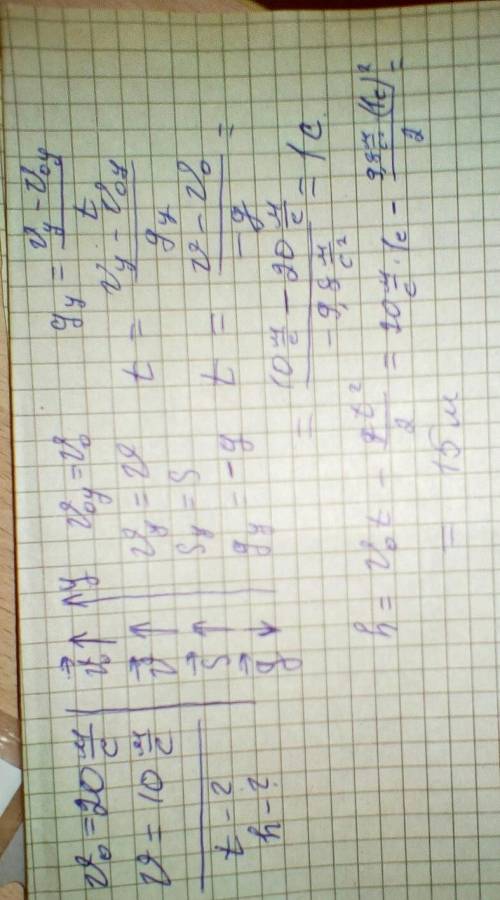 v₀ = 20 м/с
v = 10 м/с
t - ?
h - ?
v⃗₀ ↑ ↑y
v⃗ ↑
s⃗ ↑
g⃗ ↓
v₀y = v₀
vy = v
sy = s
gy = -g
gy = (vy - v₀y)/t
t = (vy - v₀y)/gy
t = (v - v₀)/-g =
= (10 м/с - 20 м/с)/(-9,8 м/с²) = 1с
h = v₀t - gt²/2 = 20 м/с · 1с - (9,8 м/с (1с)²)/2 =
= 15м